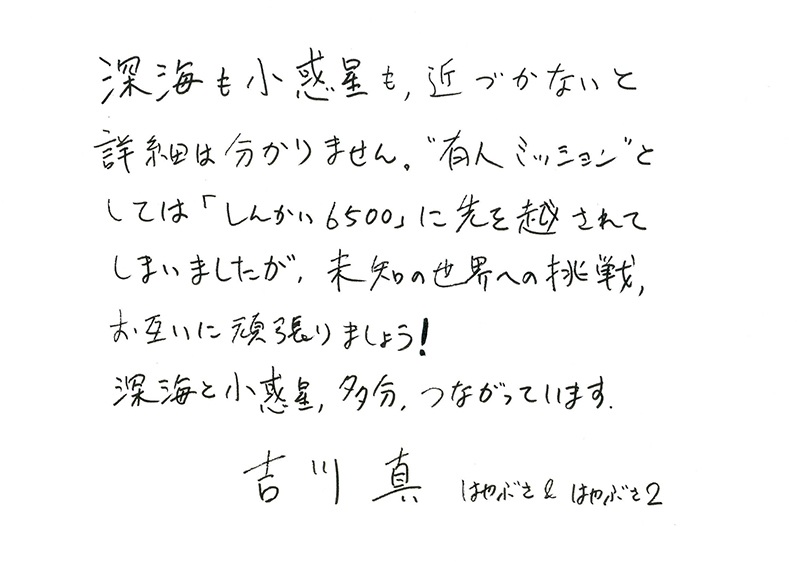 深海も小惑星も,近づかないと
詳細は分かりません。"有人ミッション"と
しては「しんかい6500」に先を越されて
しまいましたが,未知の世界への挑戦,
お互いに頑張りましょう!
深海と小惑星,多分,つながっています.
吉川 真 はやぶさ & はやぶさ2